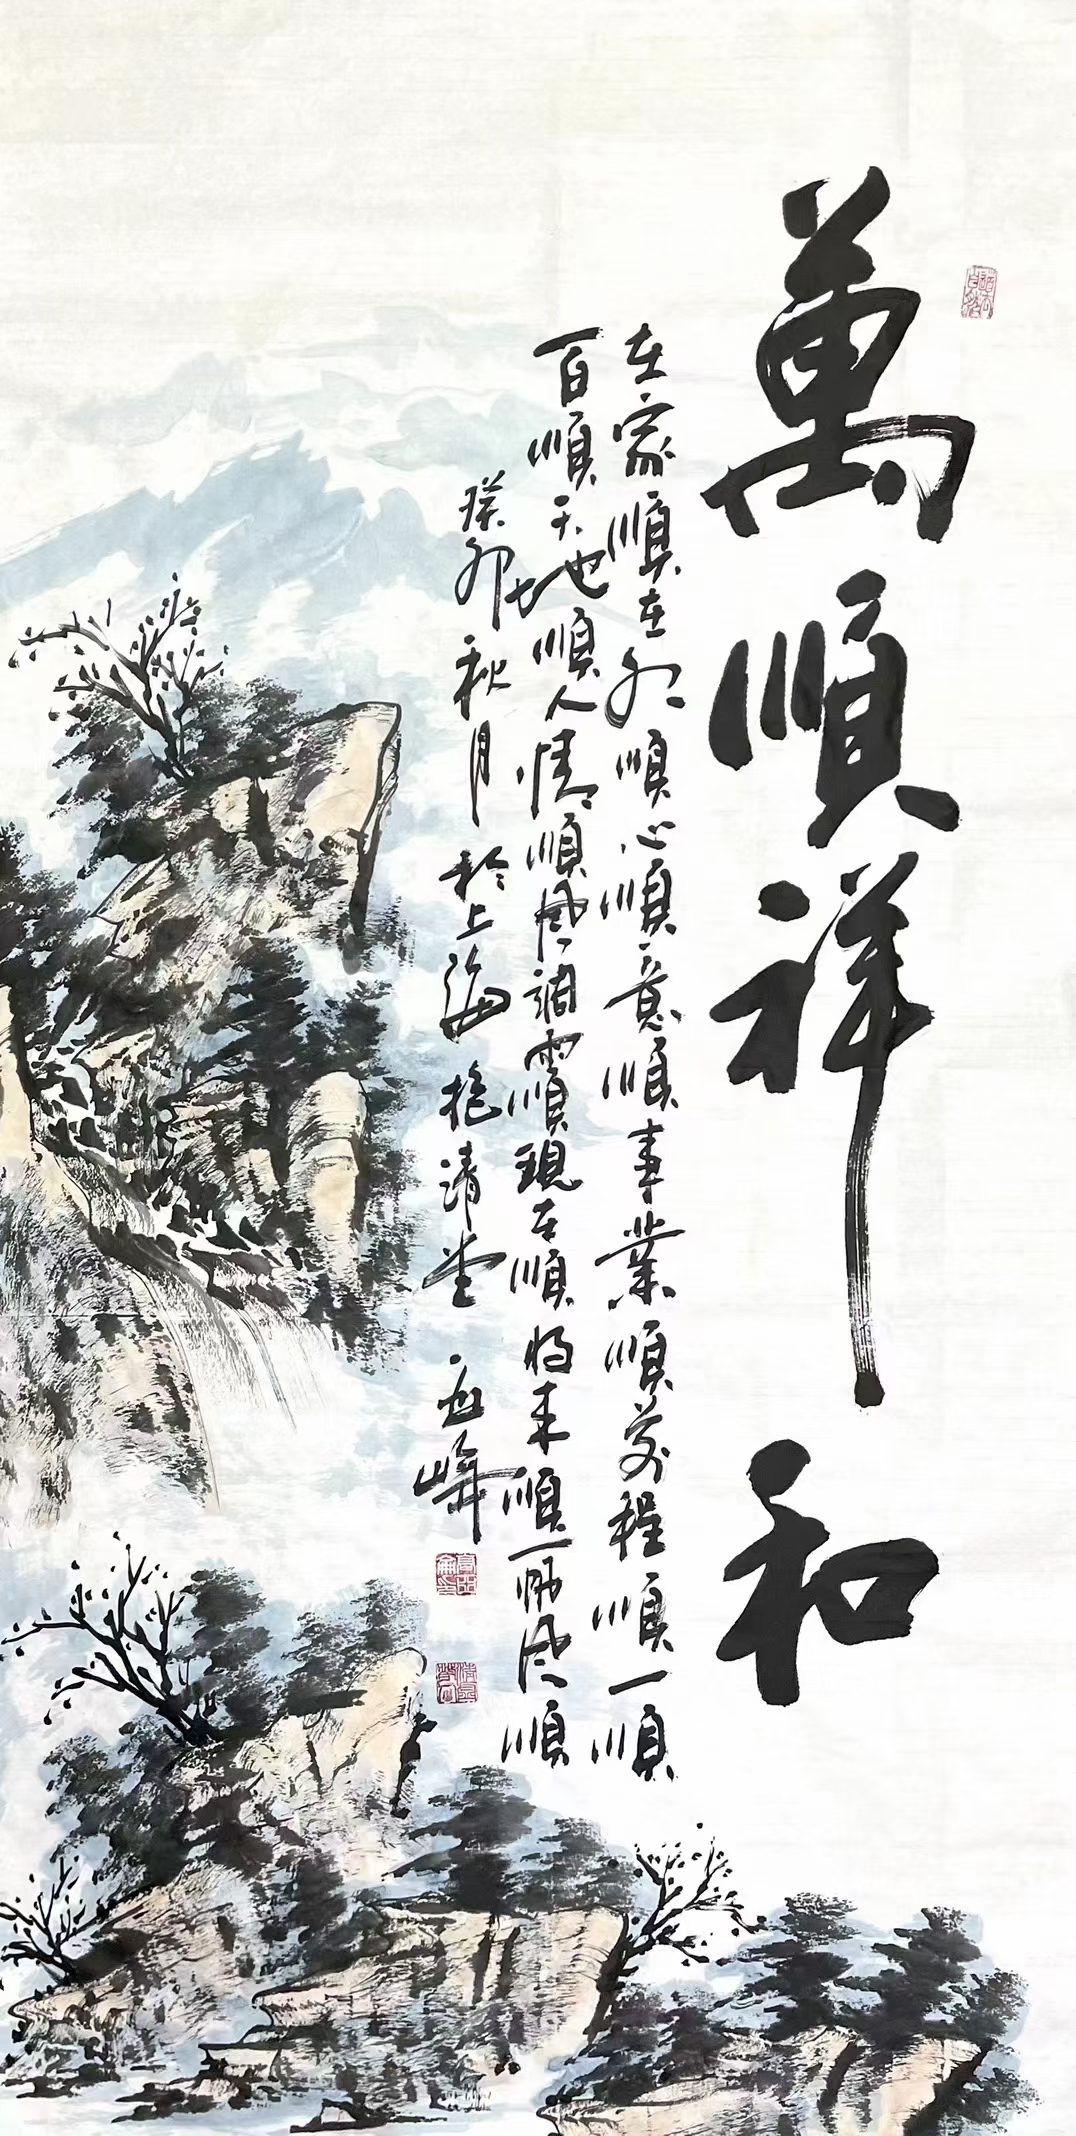 萬順祥和
在家順在外順心順意順事業順前程順一順
百順天地順人情順風調雨順現在順將來順一帆風順
癸卯秋月於上海挹清堂 峰
道法自然